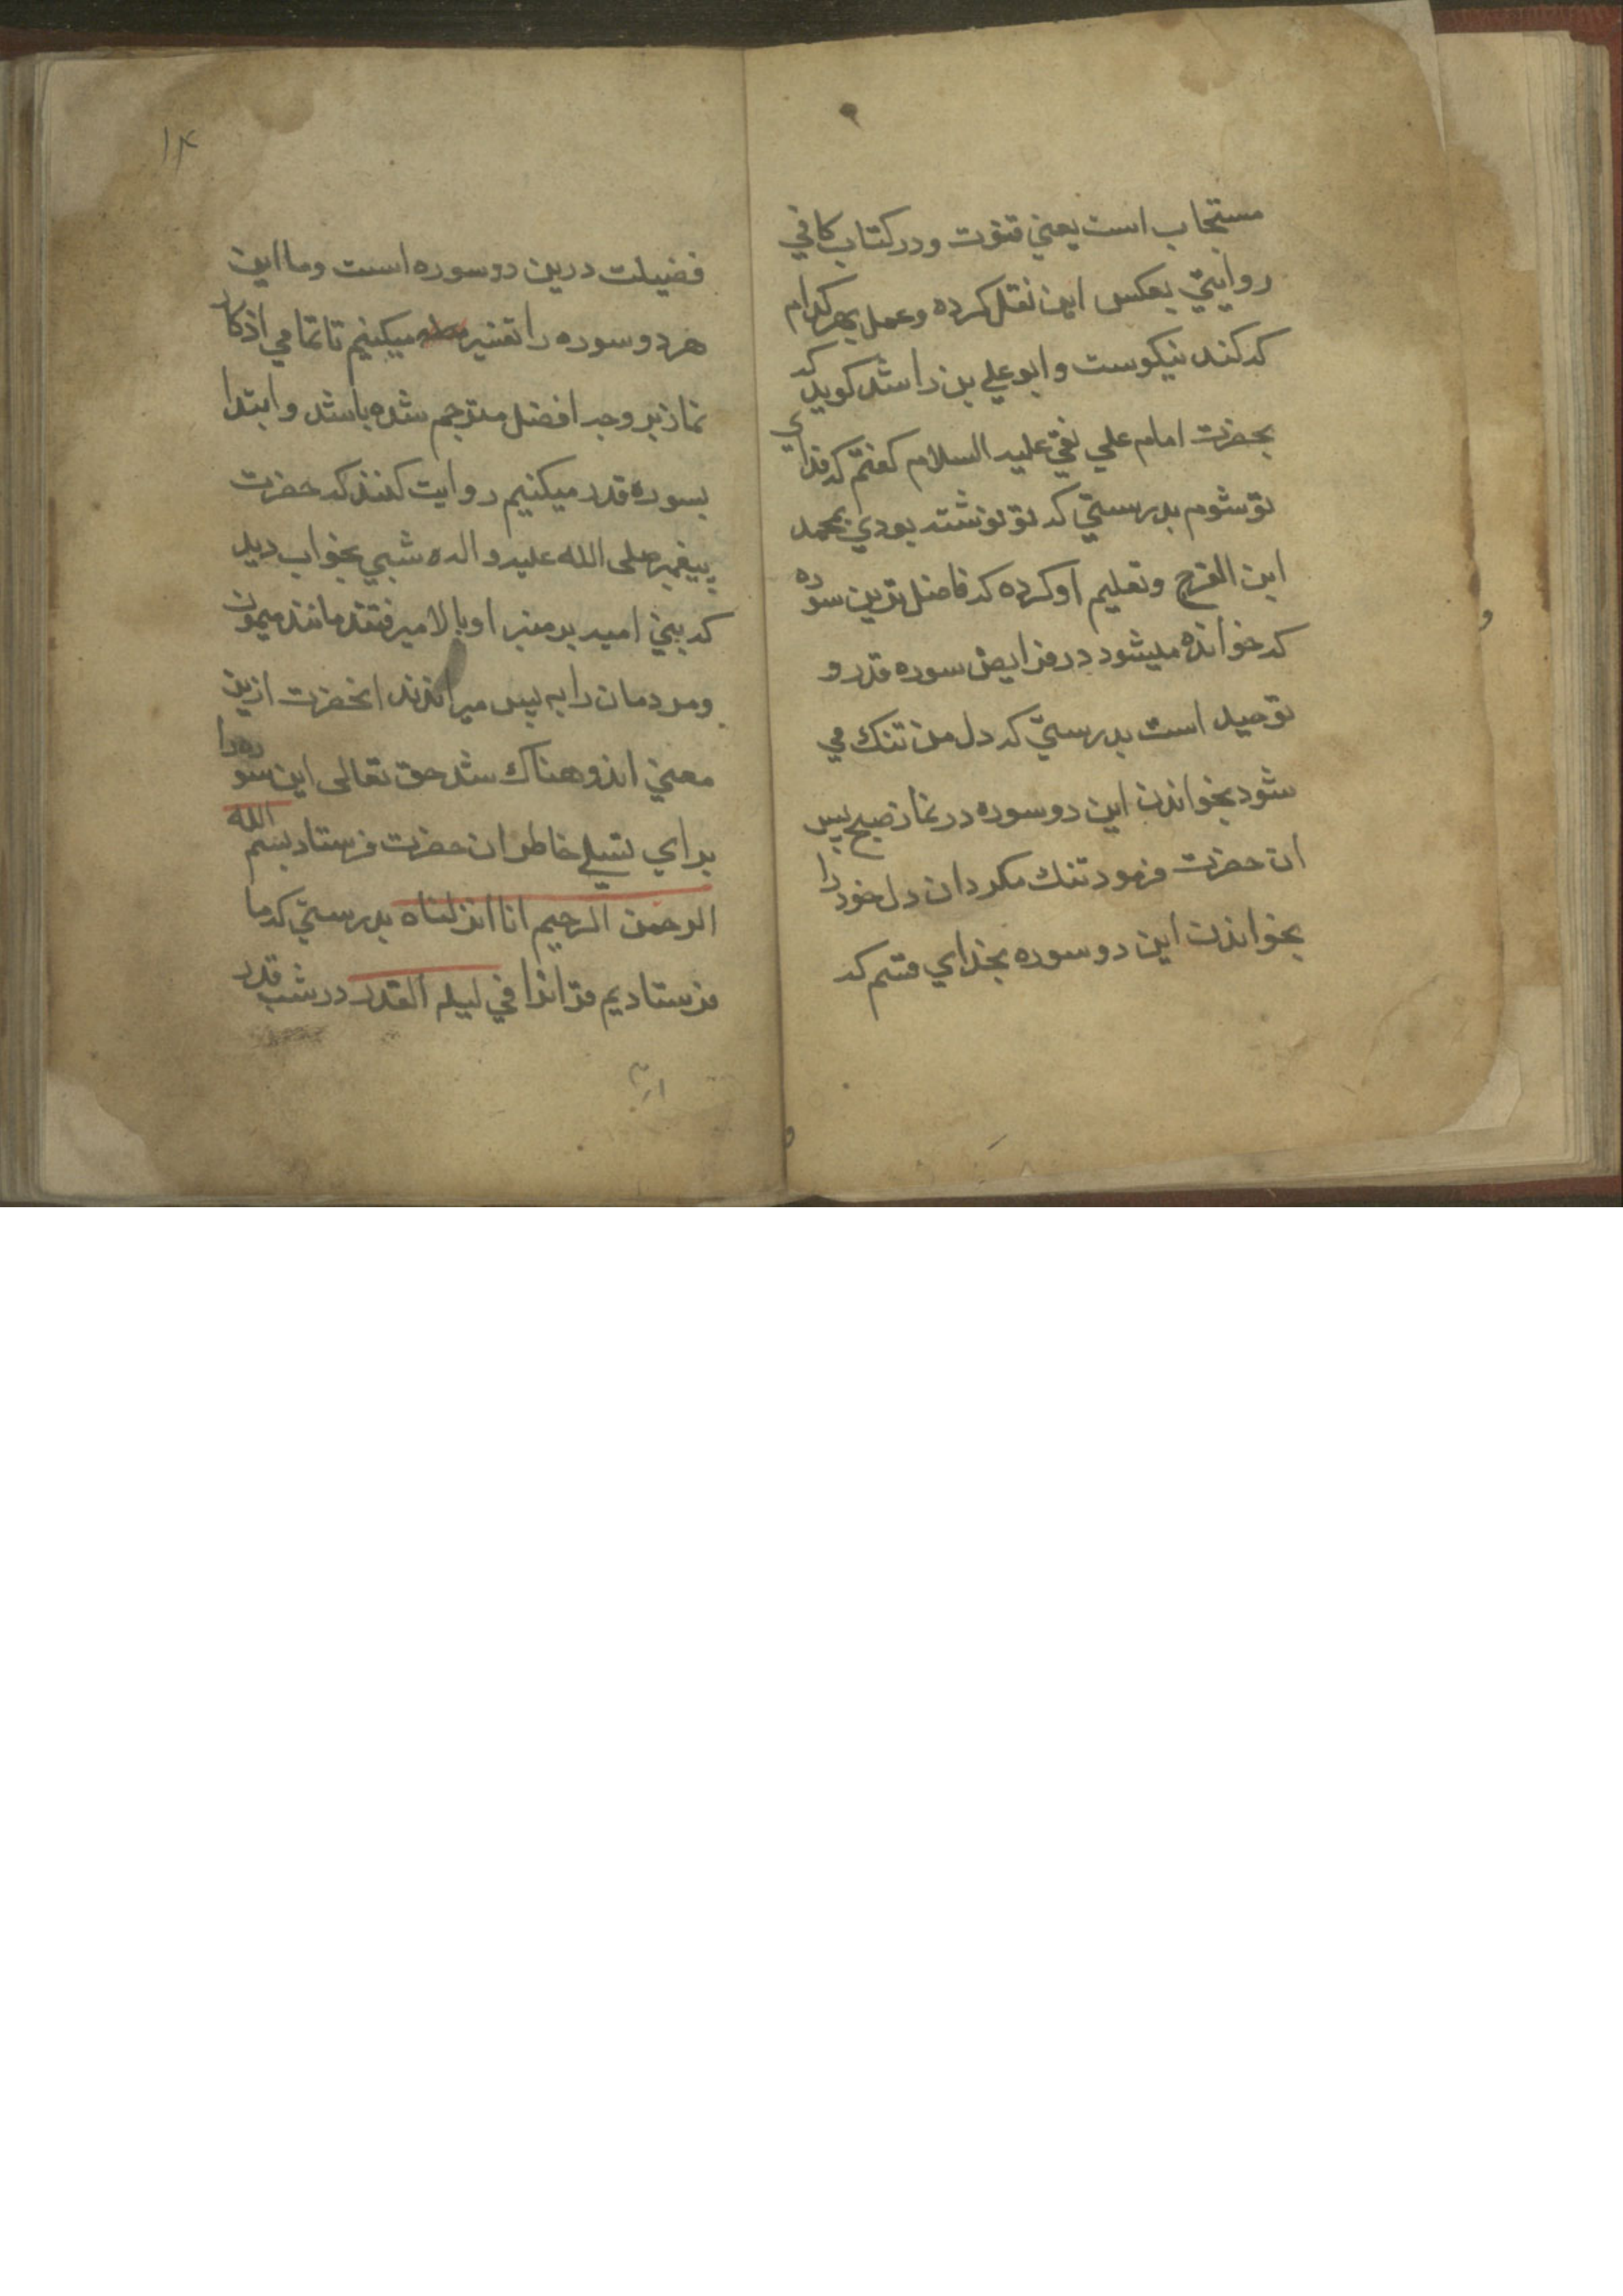 مستجاب است یعنی قنوت و در کتاب کافی
روایتی بعکس این نقل کرده و عمل بهر کدام
که کند نیکوست و ابو علی بن راشد کوید که
بحضرت امام علی نقی علیه السلام کفتم که فدای
تو شوم بدرستی که تو نوشته بودی بمحمد
ابن الفرج و تعلیم او کرده که فاضل ترین سوره
که خوانده میشود در فرایض سوره قدر و
توحید است بدرستی که دل من تنک می
شود بخواندن این دو سوره در نماز صبح پس
ان حضرت فرمود تنک مکردان دل خود را
بخواندن این دو سوره بخدای قسم که
۱۴
فضیلت درین دو سوره است و ما این
هر دو سوره را تفسیر میکنیم تا تمامی اذکار
نماز بر وجه افضل مترجم شده باشد و ابتدا
بسوره قدر میکنیم روایت کنند که حضرت
پیغمبر صلی الله علیه و اله شبی بخواب دید
که بنی امیه بر منبر او بالا میرفتند مانند میمون
و مردمان را به پس میراندند انحضرت ازین
معنی اندوهناک شد حق تعالی این سوره را
برای تسلی خاطر ان حضرت فرستاد بسم الله
الرحمن الرحیم انا انزلناه بدرستی که ما
فرستادیم قرانرا فی لیله القدر در شب قدر